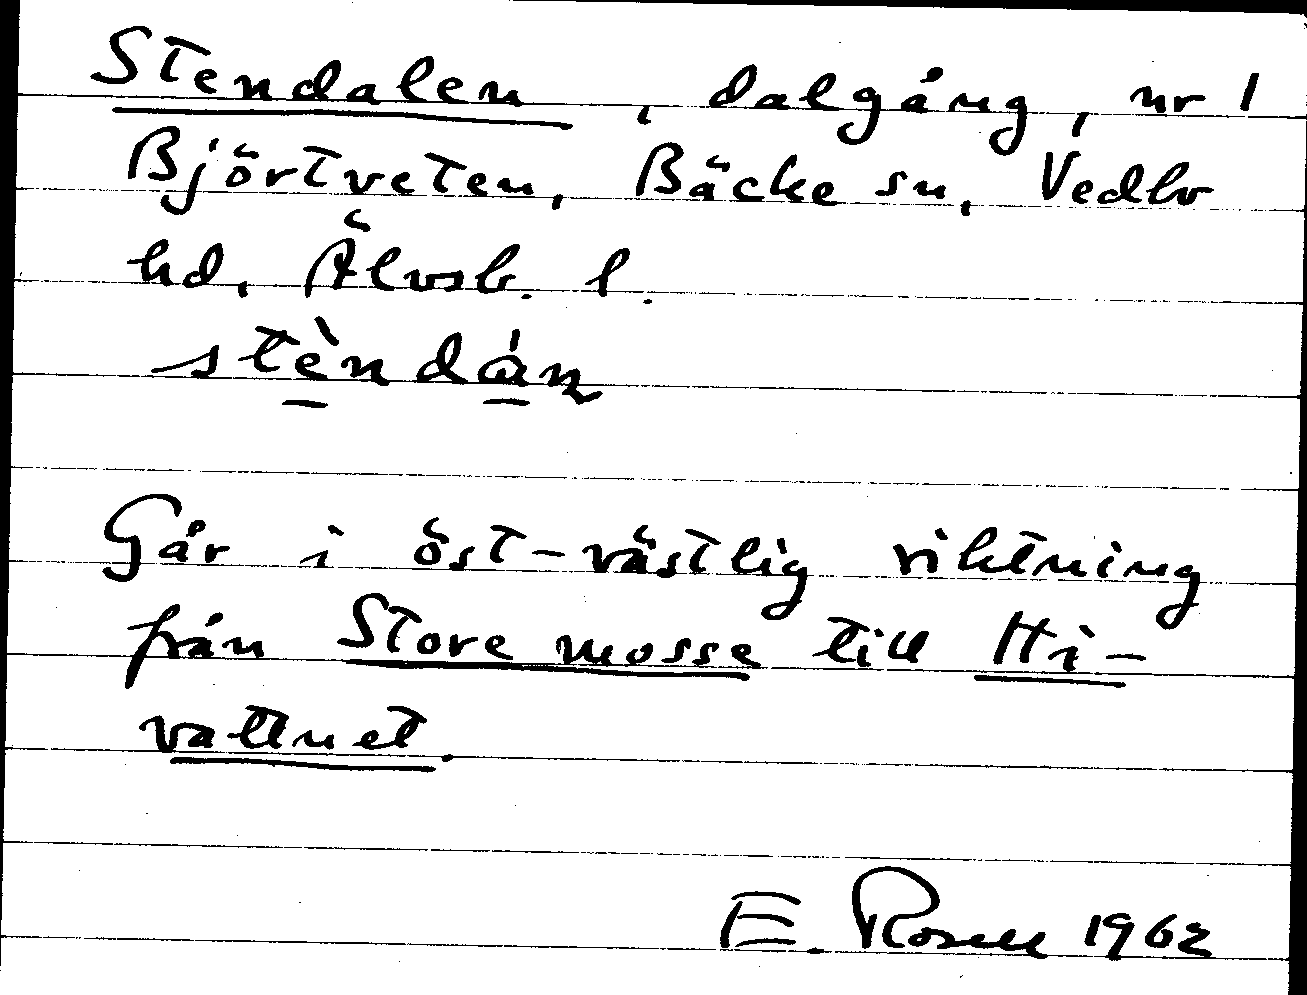 Stendalen, dalgång, nr 1
Björtveten, Bäcke sn, Vedbo
hd, Älvsb. l.
stè̱ndá̱n
Går i öst-västlig riktning
från Store mosse till Hi-
vattnet.
E. Rosell 1962